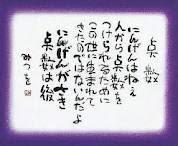 点数
にんげんはねぇ
人から点数を
つけられるために
この世に生まれて
きたのではないんだよ
にんげんがさき
点数は後
みつを